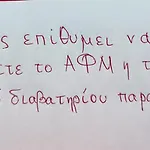 ς επίθυμει να
τε το ΑΦΜ ή τ
διαβατηρίου παρα